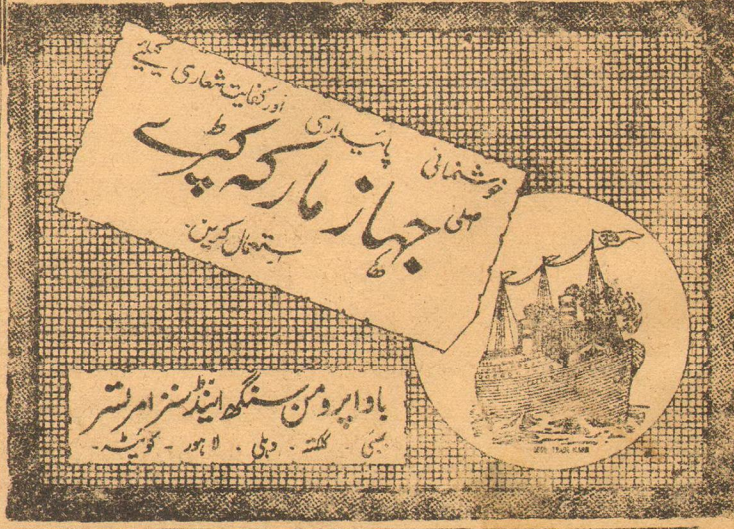 خوشنمائی پائیداری اور کفایت شعاری کیلئے
اصلی جہاز مارکہ کپڑے
استعمال کریں۔
باوا پرومن سنگھ اینڈ سنز امرتسر
بمبئی ۔ کلکتہ ۔ دہلی ۔ لاہور ۔ کوئٹہ ۔